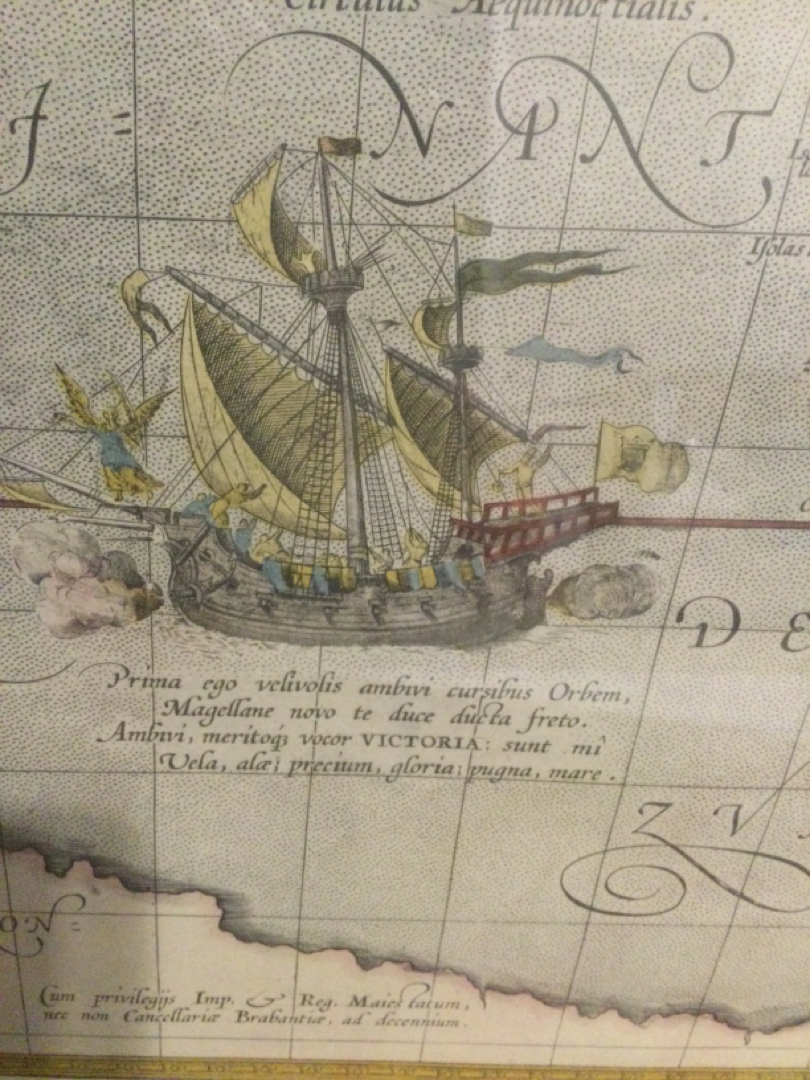 Circulus Aequinoctialis.
NANT
Isolas
DE
Prima ego velivolis ambivi cursibus Orbem,
Magellane novo te duce ducta freto.
Ambivi, meritoq; vocor VICTORIA: sunt mî
Vela, alæ; precium, gloria; pugna, mare.
ZV
ON=
Cum privilegijs Imp. & Reg. Maiestatum,
nec non Cancellariæ Brabantiæ, ad decennium.